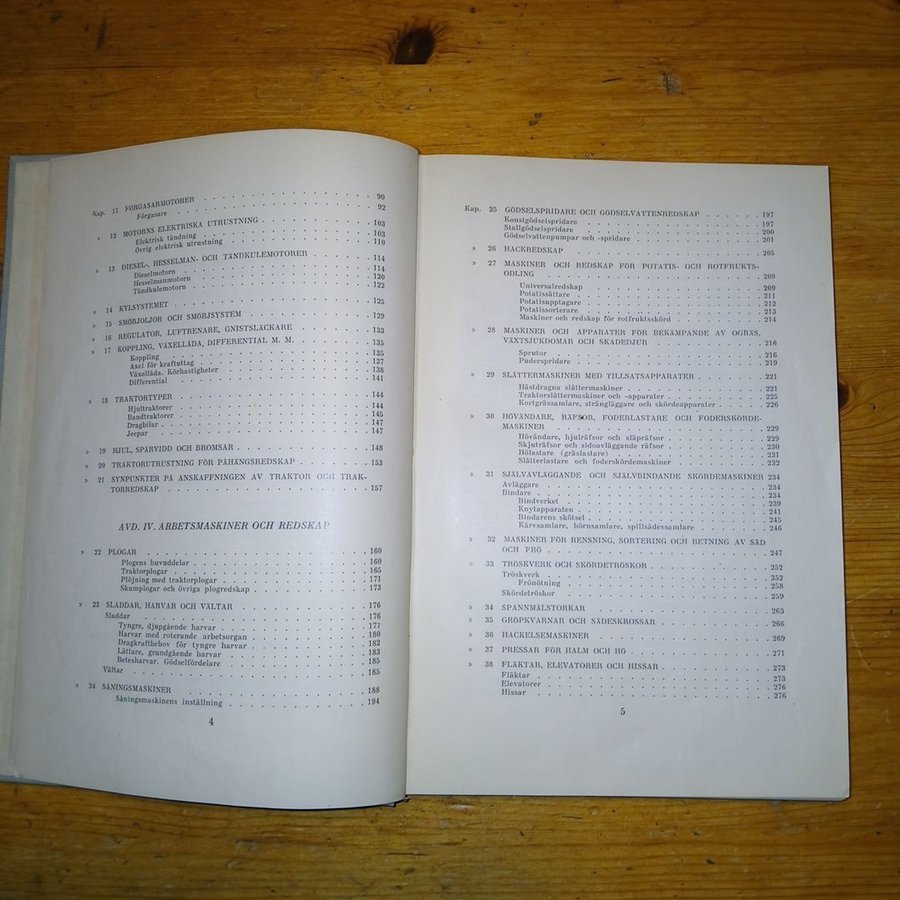 Kap. 11 FÖRGASARMOTORER . . . 90
Förgasare . . . 92
» 12 MOTORNS ELEKTRISKA UTRUSTNING . . . 103
Elektrisk tändning . . . 103
Övrig elektrisk utrustning . . . 110
» 13 DIESEL-, HESSELMAN- OCH TÄNDKULEMOTORER . . . 114
Dieselmotorn . . . 114
Hesselmanmotorn . . . 120
Tändkulemotorn . . . 122
» 14 KYLSYSTEMET . . . 125
» 15 SMÖRJOLJOR OCH SMÖRJSYSTEM . . . 129
» 16 REGULATOR, LUFTRENARE, GNISTSLÄCKARE . . . 133
» 17 KOPPLING, VÄXELLÅDA, DIFFERENTIAL M. M. . . . 135
Koppling . . . 135
Axel för kraftuttag . . . 137
Växellåda. Körhastigheter . . . 138
Differential . . . 141
» 18 TRAKTORTYPER . . . 144
Hjultraktorer . . . 144
Bandtraktorer . . . 145
Dragbilar . . . 147
Jeepar . . . 147
» 19 HJUL, SPÅRVIDD OCH BROMSAR . . . 148
» 20 TRAKTORUTRUSTNING FÖR PÅHÄNGSREDSKAP . . . 153
» 21 SYNPUNKTER PÅ ANSKAFFNINGEN AV TRAKTOR OCH TRAK-
TORREDSKAP . . . 157
AVD. IV. ARBETSMASKINER OCH REDSKAP
» 22 PLOGAR . . . 160
Plogens huvuddelar . . . 160
Traktorplogar . . . 165
Plöjning med traktorplogar . . . 171
Skumplogar och övriga plogredskap . . . 173
» 23 SLADDAR, HARVAR OCH VÄLTAR . . . 176
Sladdar . . . 176
Tyngre, djupgående harvar . . . 177
Harvar med roterande arbetsorgan . . . 180
Dragkraftbehov för tyngre harvar . . . 182
Lättare, grundgående harvar . . . 183
Betesharvar. Gödselfördelare . . . 185
Vältar . . . 185
» 24 SÅNINGSMASKINER . . . 188
Såningsmaskinens inställning . . . 194
4
Kap. 25 GÖDSELSPRIDARE OCH GÖDSELVATTENREDSKAP . . . 197
Konstgödselspridare . . . 197
Stallgödselspridare . . . 200
Gödselvattenpumpar och -spridare . . . 201
» 26 HACKREDSKAP . . . 205
» 27 MASKINER OCH REDSKAP FÖR POTATIS- OCH ROTFRUKTS-
ODLING . . . 209
Universalredskap . . . 209
Potatissättare . . . 211
Potatisupptagare . . . 212
Potatissorterare . . . 213
Maskiner och redskap för rotfruktsskörd . . . 214
» 28 MASKINER OCH APPARATER FÖR BEKÄMPANDE AV OGRÄS,
VÄXTSJUKDOMAR OCH SKADEDJUR . . . 216
Sprutor . . . 216
Puderspridare . . . 219
» 29 SLÅTTERMASKINER MED TILLSATSAPPARATER . . . 221
Hästdragna slåttermaskiner . . . 221
Traktorslåttermaskiner och -apparater . . . 225
Kortgrässamlare, strängläggare och skördeapparater . . . 226
» 30 HÖVÄNDARE, RÄFSOR, FODERLASTARE OCH FODERSKÖRDE-
MASKINER . . . 229
Hövändare, hjulräfsor och släpräfsor . . . 229
Skjuträfsor och sidoavläggande räfsor . . . 230
Hölastare (gräslastare) . . . 231
Slåtterlastare och foderskördemaskiner . . . 232
» 31 SJÄLVAVLÄGGANDE OCH SJÄLVBINDANDE SKÖRDEMASKINER 234
Avläggare . . . 234
Bindare . . . 234
Bindverket . . . 239
Knytapparaten . . . 241
Bindarens skötsel . . . 245
Kärvsamlare, hörnsamlare, spillsädessamlare . . . 246
» 32 MASKINER FÖR RENSNING, SORTERING OCH BETNING AV SÄD
OCH FRÖ . . . 247
» 33 TRÖSKVERK OCH SKÖRDETRÖSKOR . . . 252
Tröskverk . . . 252
Frönötning . . . 258
Skördetröskor . . . 259
» 34 SPANNMÅLSTORKAR . . . 263
» 35 GRÖPKVARNAR OCH SÄDESKROSSAR . . . 266
» 36 HACKELSEMASKINER . . . 269
» 37 PRESSAR FÖR HALM OCH HÖ . . . 271
» 38 FLÄKTAR, ELEVATORER OCH HISSAR . . . 273
Fläktar . . . 273
Elevatorer . . . 276
Hissar . . . 276
5